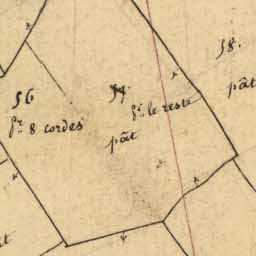 56
pr 8 cordes
57
pr le reste
pât
58.
pât